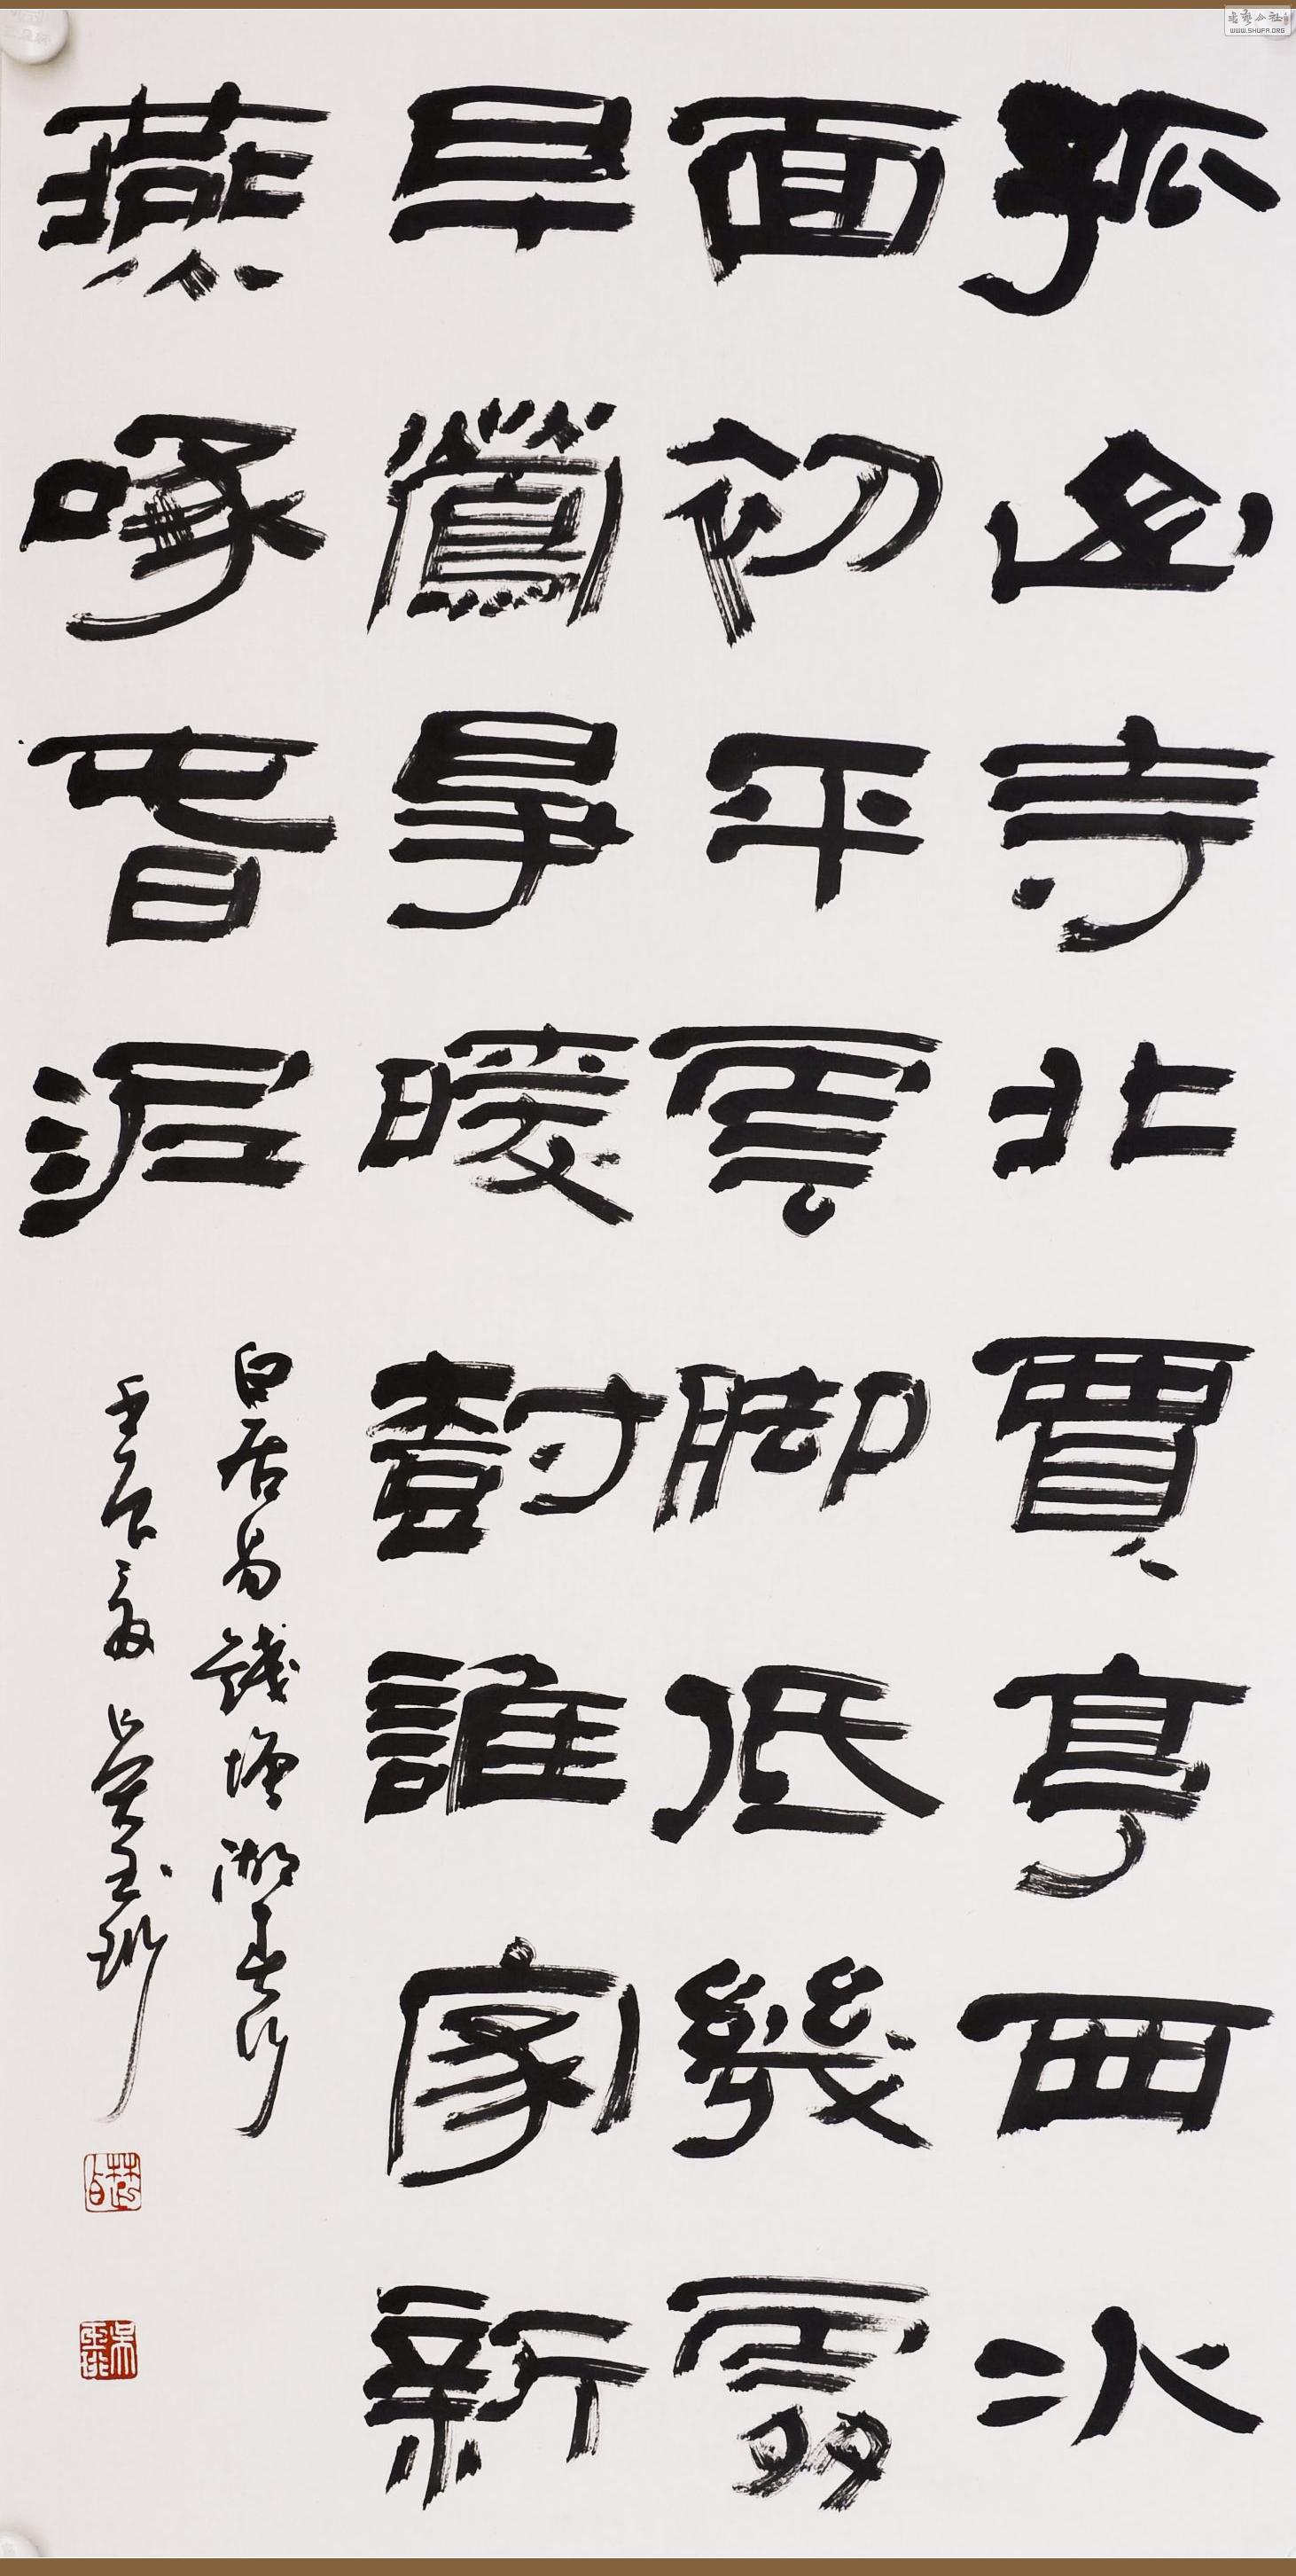 孤山寺北賈亭西水
面初平雲脚低幾處
早鶯爭暖樹誰家新
燕啄春泥
白居易錢塘湖春行
壬辰夏 吳玉
书艺公社
WWW.SHUFA.ORG